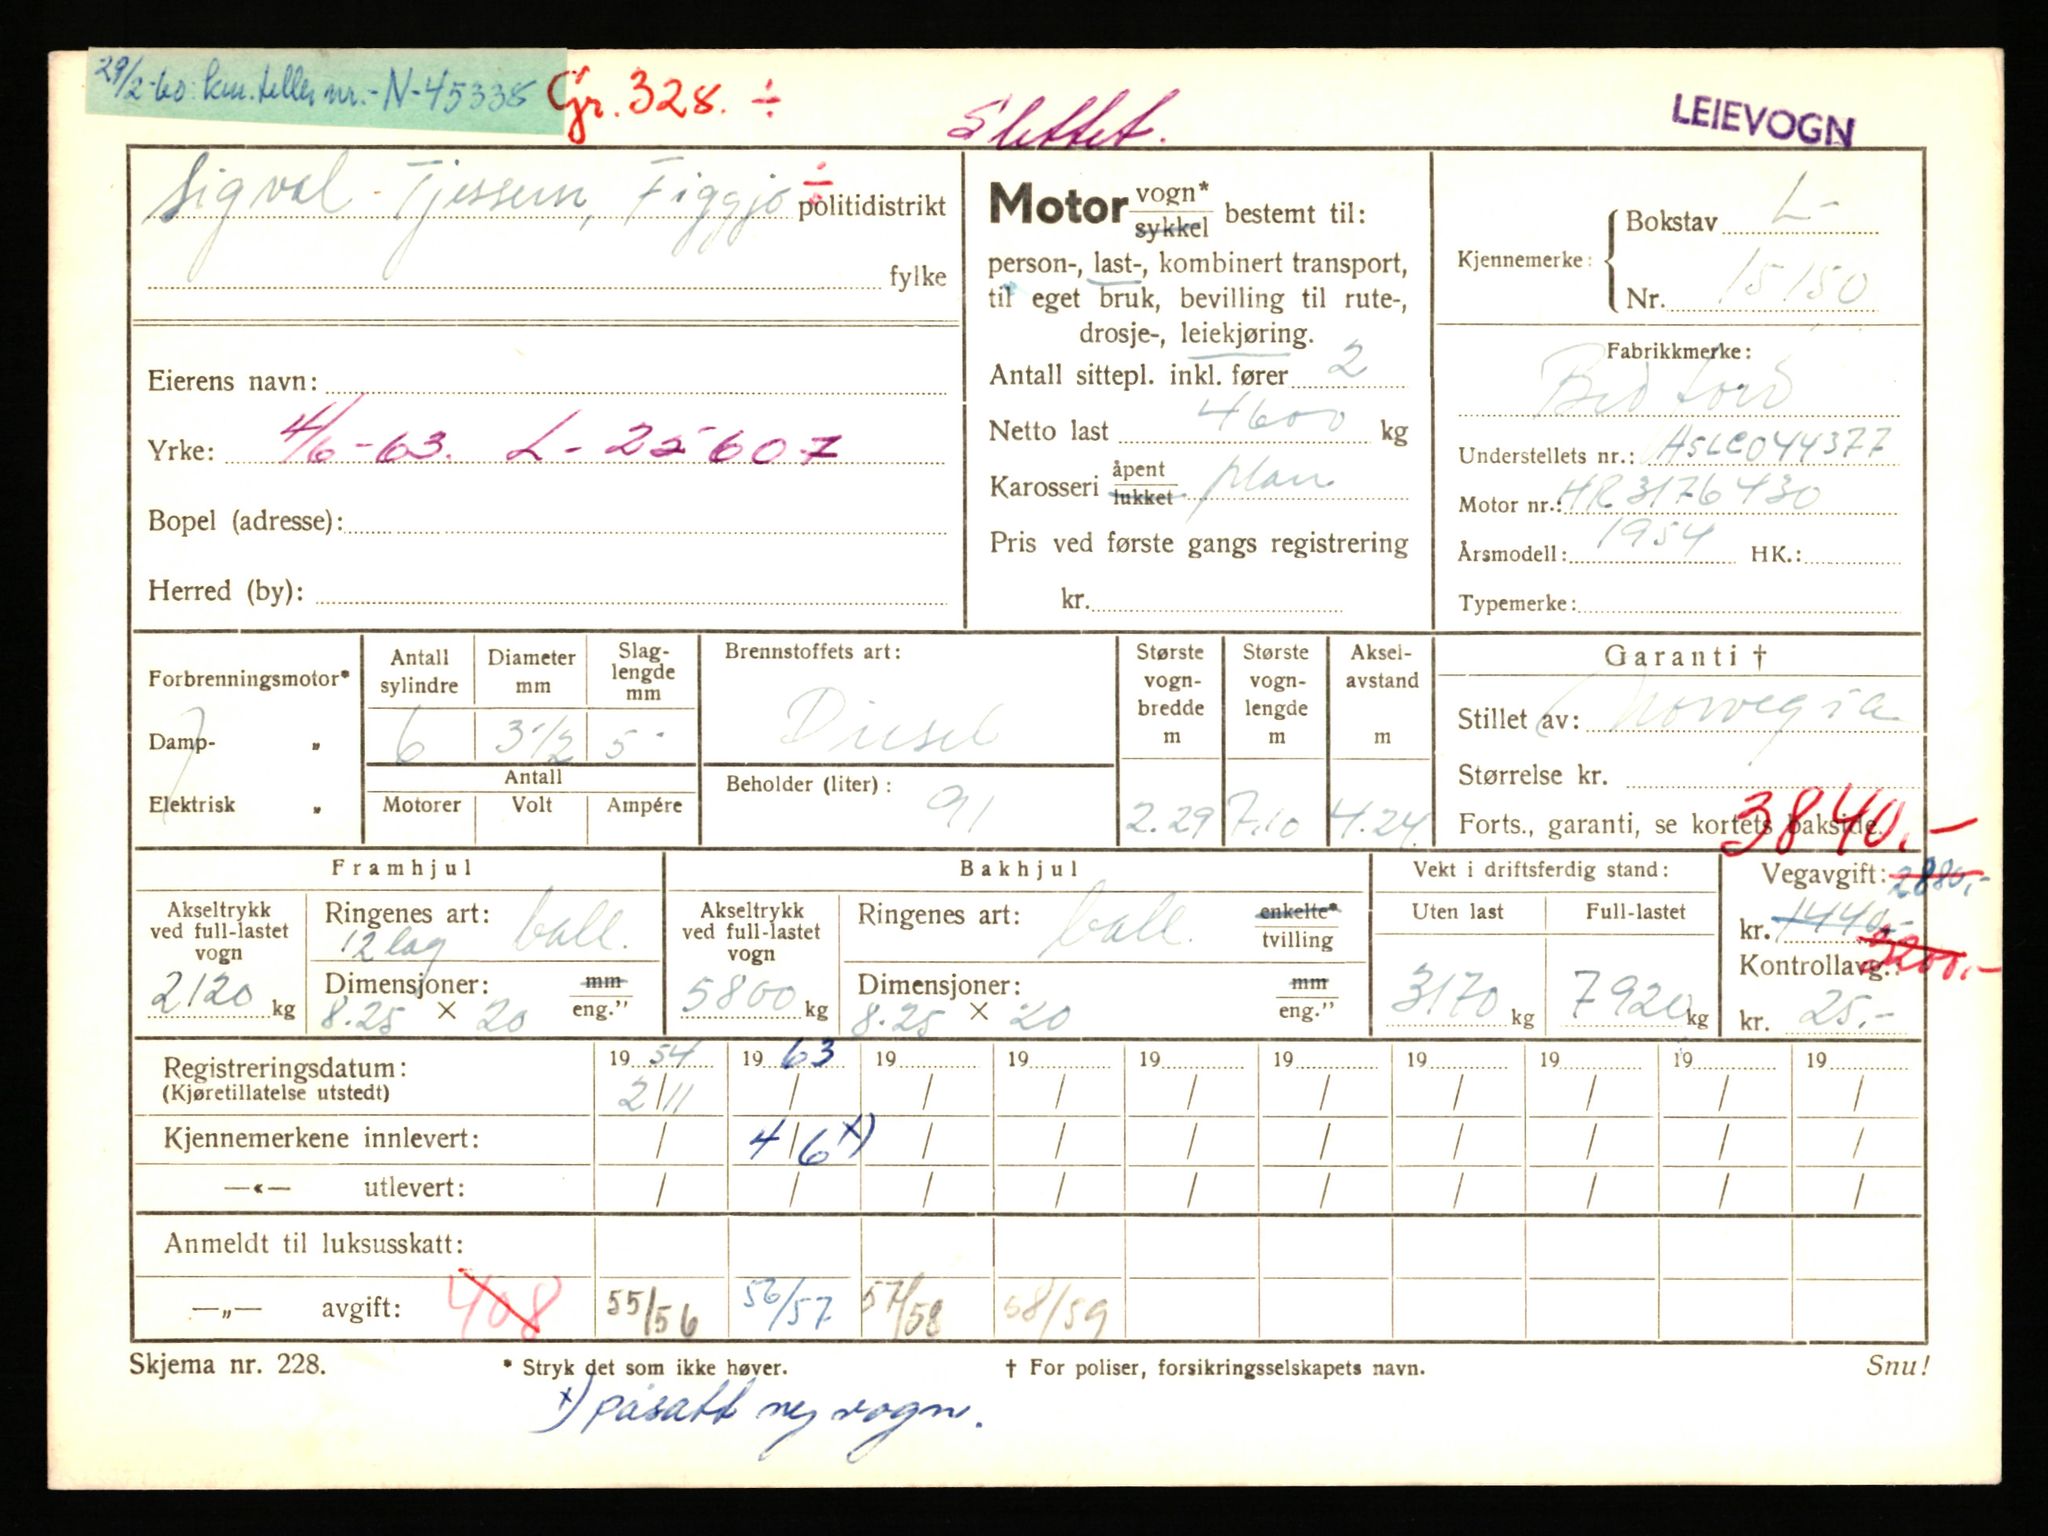 29/2-60: km.teller nr.- N-45338
Gr. 328. ÷
Slettet.
LEIEVOGN
Sigval Tjessem, Figgjo ÷ politidistrikt
fylke
Eierens navn:
Yrke: 4/6-63. L- 22607
Bopel (adresse):
Herred (by):
Motor vogn* / sykkel bestemt til:
person-, last-, kombinert transport,
til eget bruk, bevilling til rute-,
drosje-, leiekjøring.
Antall sittepl. inkl. fører 2
Netto last 4600 kg
Karosseri åpent / lukket plan
Pris ved første gangs registrering
kr.
Kjennemerke: Bokstav L-
Nr. 15150
Fabrikkmerke:
Bedford
Understellets nr.: ASLC044377
Motor nr.: HR3176430
Årsmodell: 1954 HK.:
Typemerke:
Forbrenningsmotor*
Damp- „
Elektrisk „
Antall sylindre 6
Diameter mm 3 1/2
Slag-lengde mm 5
Antall
Motorer Volt Ampére
Brennstoffets art:
Diesel
Beholder (liter): 91
Største vogn-bredde m 2.29
Største vogn-lengde m 7.10
Aksel-avstand m 4.24
Garanti †
Stillet av: Norwegia
Størrelse kr.
Forts., garanti, se kortets bakside.
3840.-
Framhjul
Akseltrykk ved full-lastet vogn 2120 kg
Ringenes art: 12 lag ball.
Dimensjoner: 8.25 × 20 mm / eng."
Bakhjul
Akseltrykk ved full-lastet vogn 5800 kg
Ringenes art: ball. enkelte* / tvilling
Dimensjoner: 8.25 × 20 mm / eng."
Vekt i driftsferdig stand:
Uten last 3170 kg
Full-lastet 7920 kg
Vegavgift: 2880,-
kr. 1440,-
3200,-
Kontrollavg.:
kr. 25.-
Registreringsdatum: 19 54 19 63 19 19 19 19 19 19 19 19
(Kjøretillatelse utstedt) 2/11 / / / / / / / / /
Kjennemerkene innlevert: / 4/6 x) / / / / / / / /
—«— utlevert: / / / / / / / / / /
Anmeldt til luksusskatt:
—„— avgift: 408 55/56 56/57 57/58 58/59
Skjema nr. 228.
* Stryk det som ikke høver.
† For poliser, forsikringsselskapets navn.
Snu!
x) påsatt ny vogn.